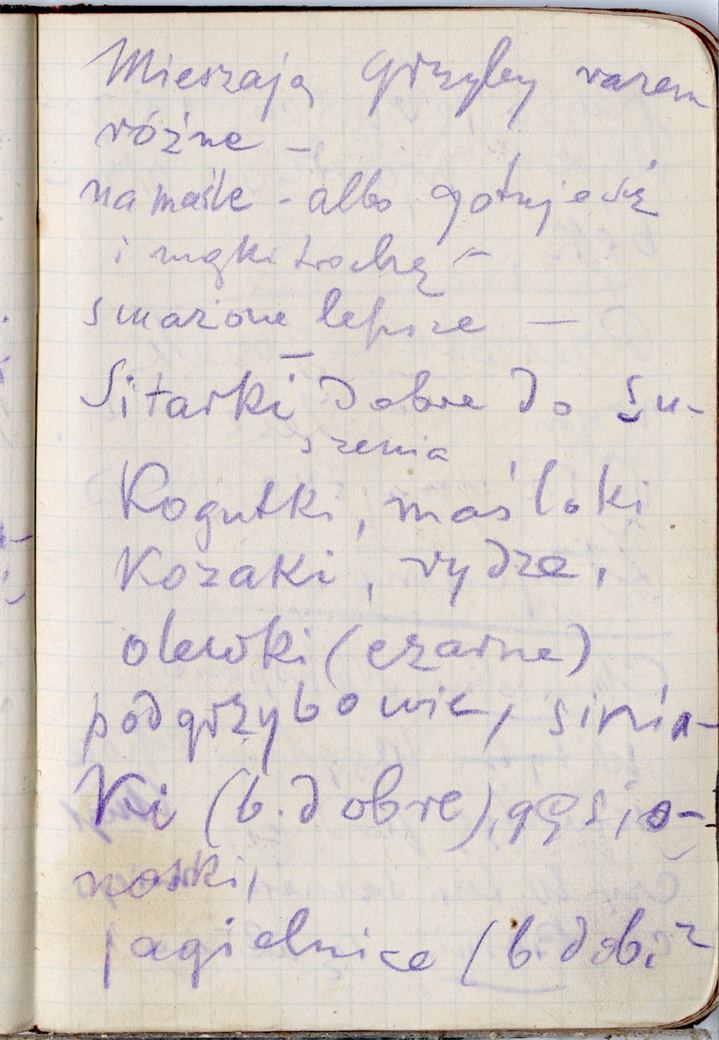 Mieszają grzyby razem
różne –
na maśle - albo gotuje się
i mąki trochę –
smażone lepsze —
Sitarki dobre do su-
szenia
Kogutki, maśloki
Kozaki, rydze,
olewki (czarne)
podgrzybowie, sinia-
ki (b. dobre), gęsio-
noski,
jagielnice (b. dobr